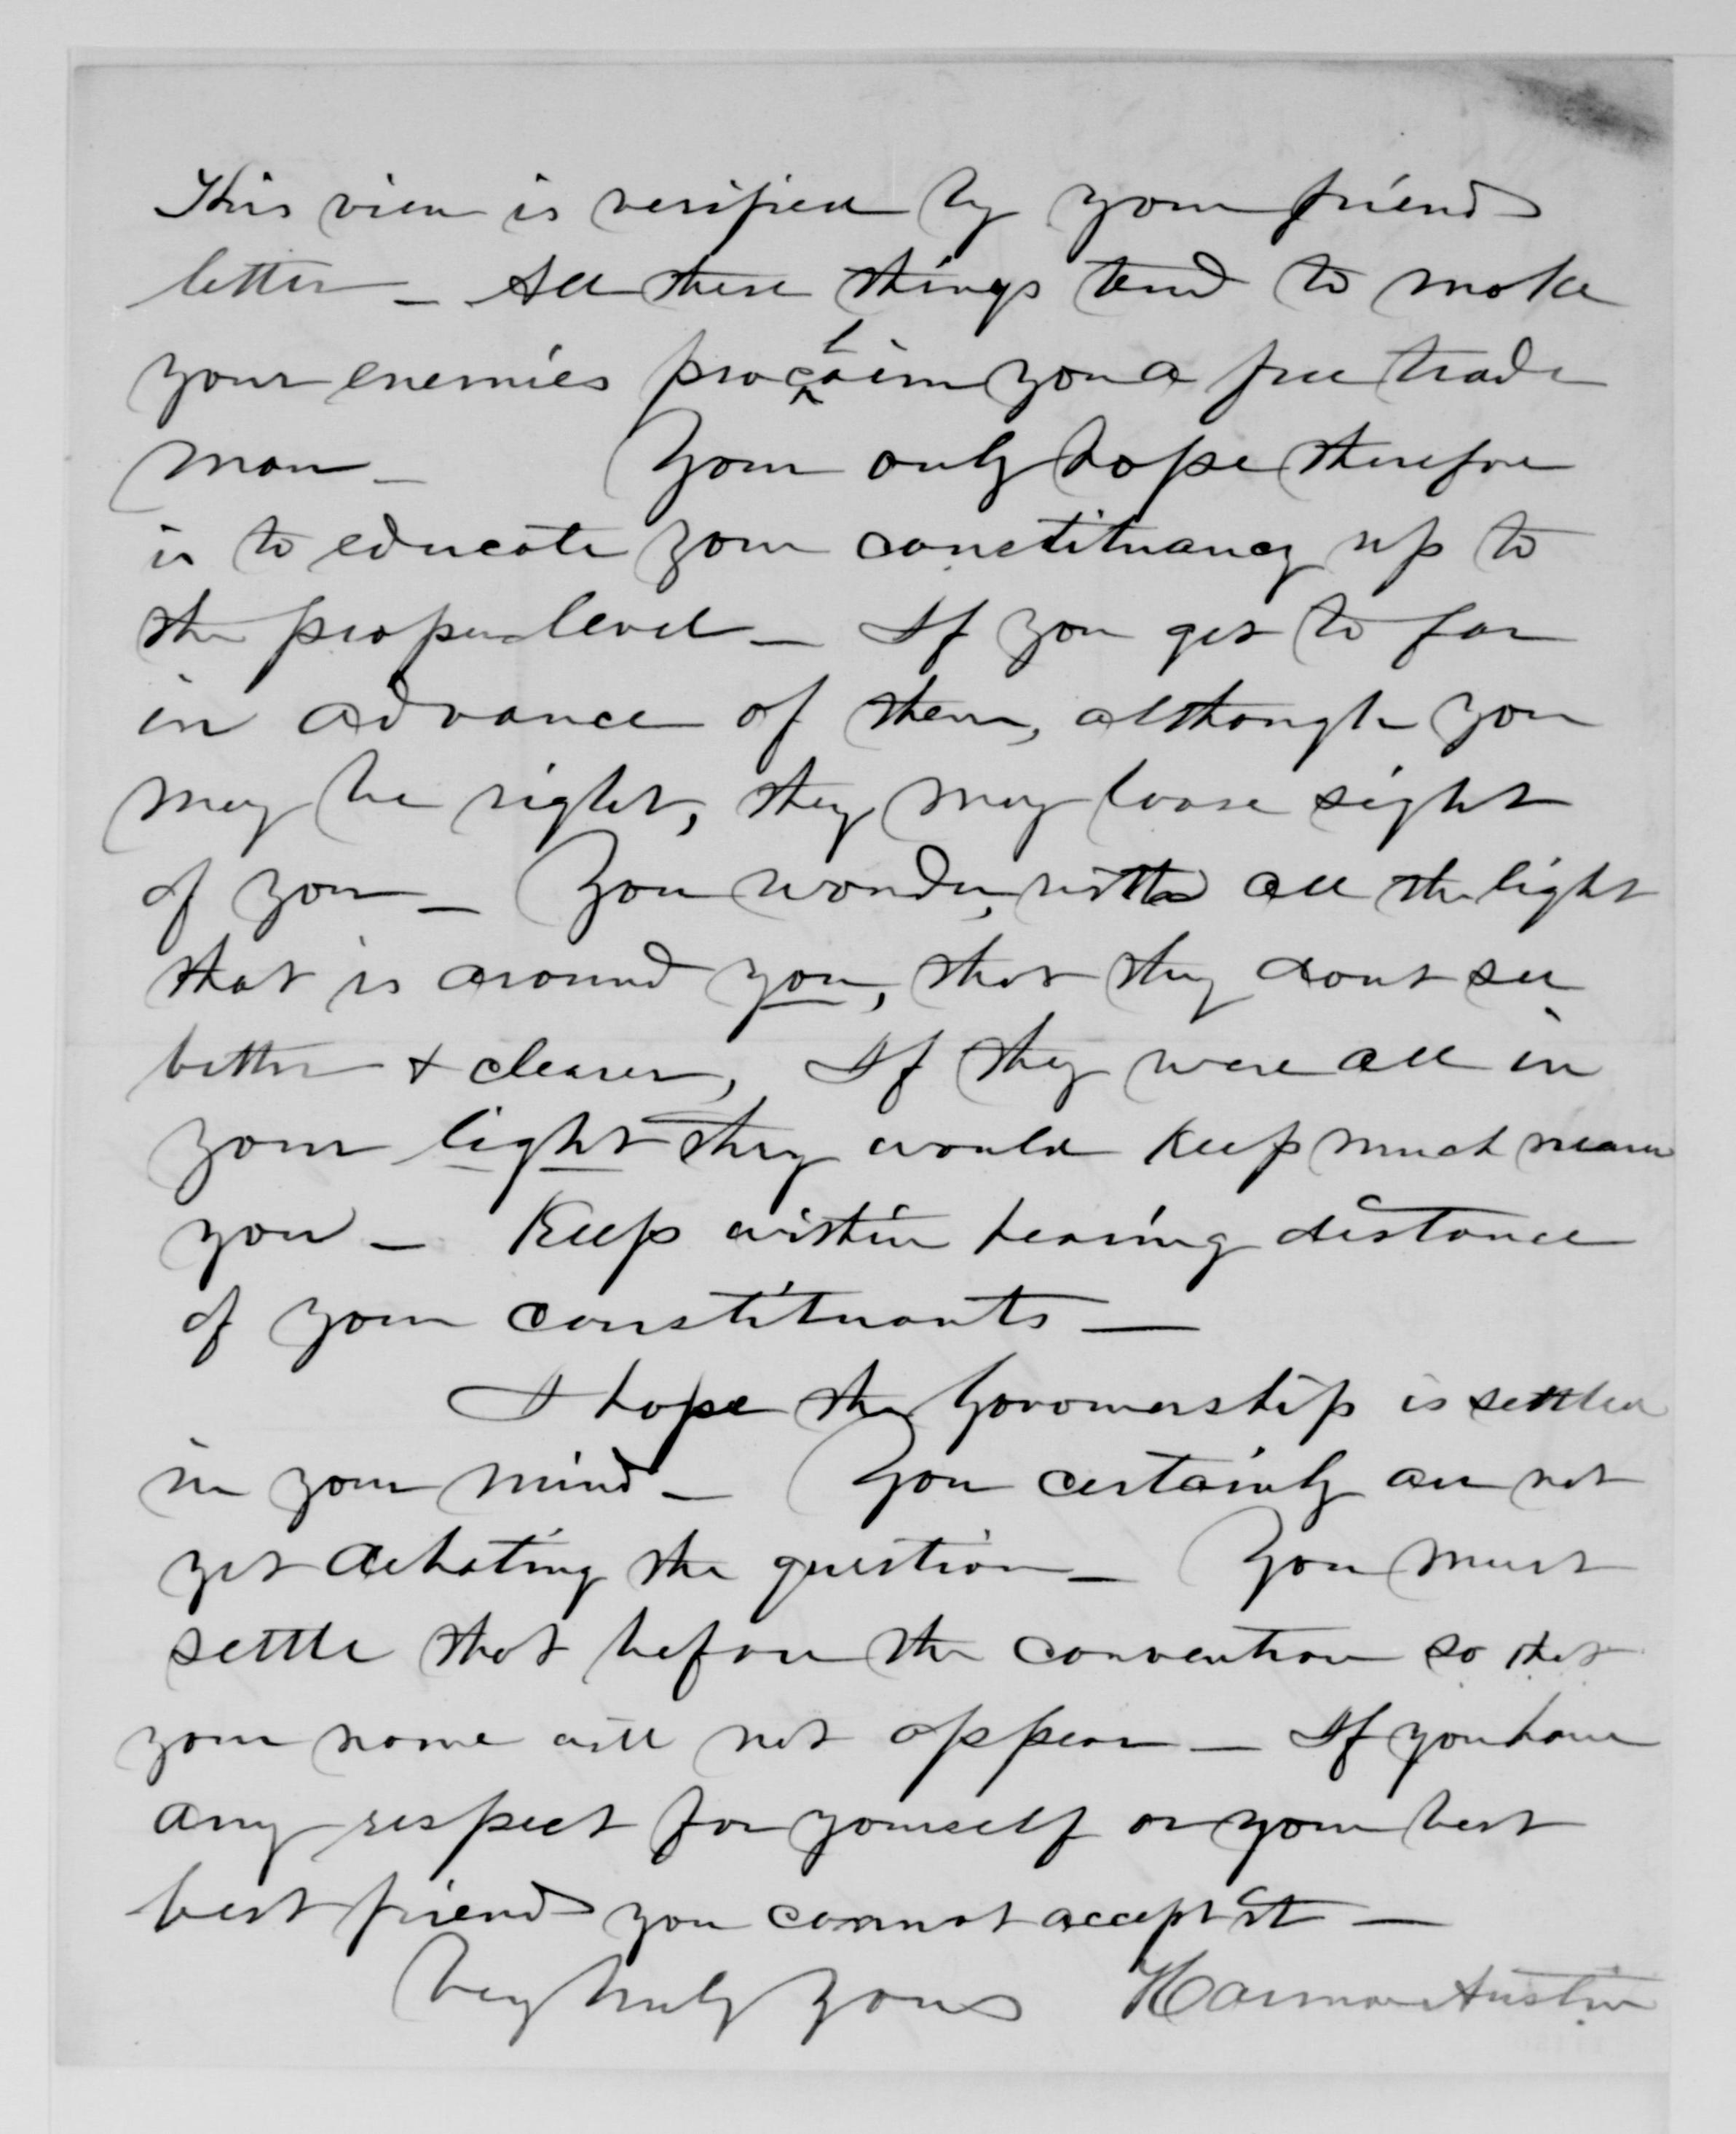 This view is verified by your friends
letter – All these things tend to make
your enemies proclaim you a free trade
man – Your only hope therefore
is to educate your constituancy up to
the proper level – If you get to far
in advance of them, although you
may be right, they may loose sight
of you – You wonder, with all the light
that is around you, that they dont see
better & clearer, If they were all in
your light they would keep much nearer
you – Keep within hearing distance
of your constituants –
I hope the Govornership is settled
in your mind – You certainly are not
yet debating the question – You must
settle that before the convention so that
your name will not appear – If you have
any respect for yourself or your best
best friends you cannot accept it –
Very truly yours Harmon Austin